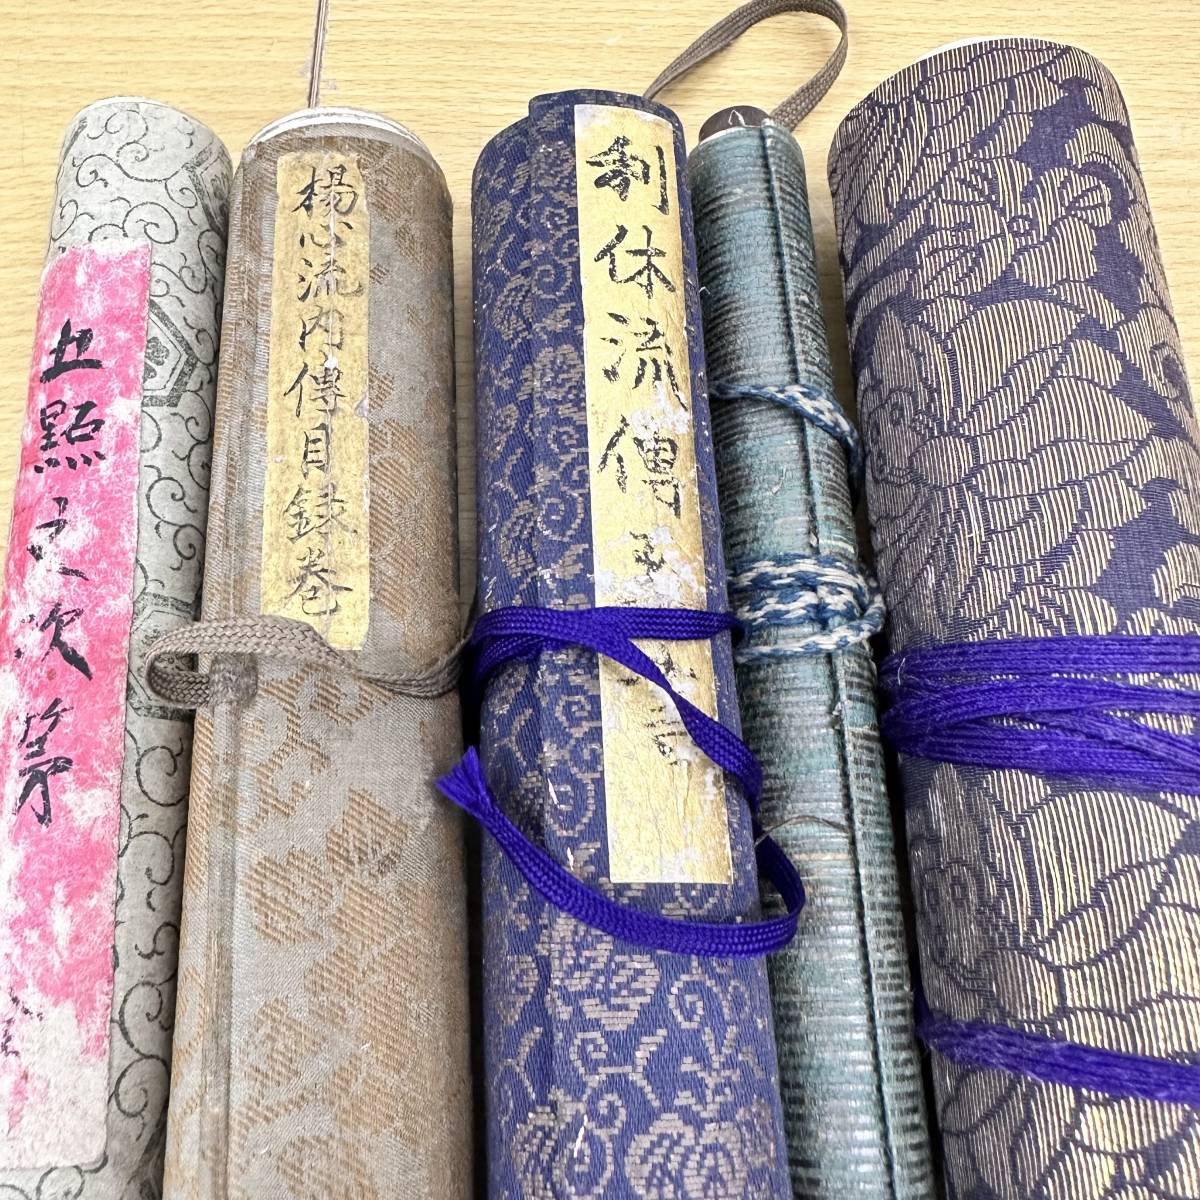 五點之次第
楊心流内傳目録巻
利休流傳